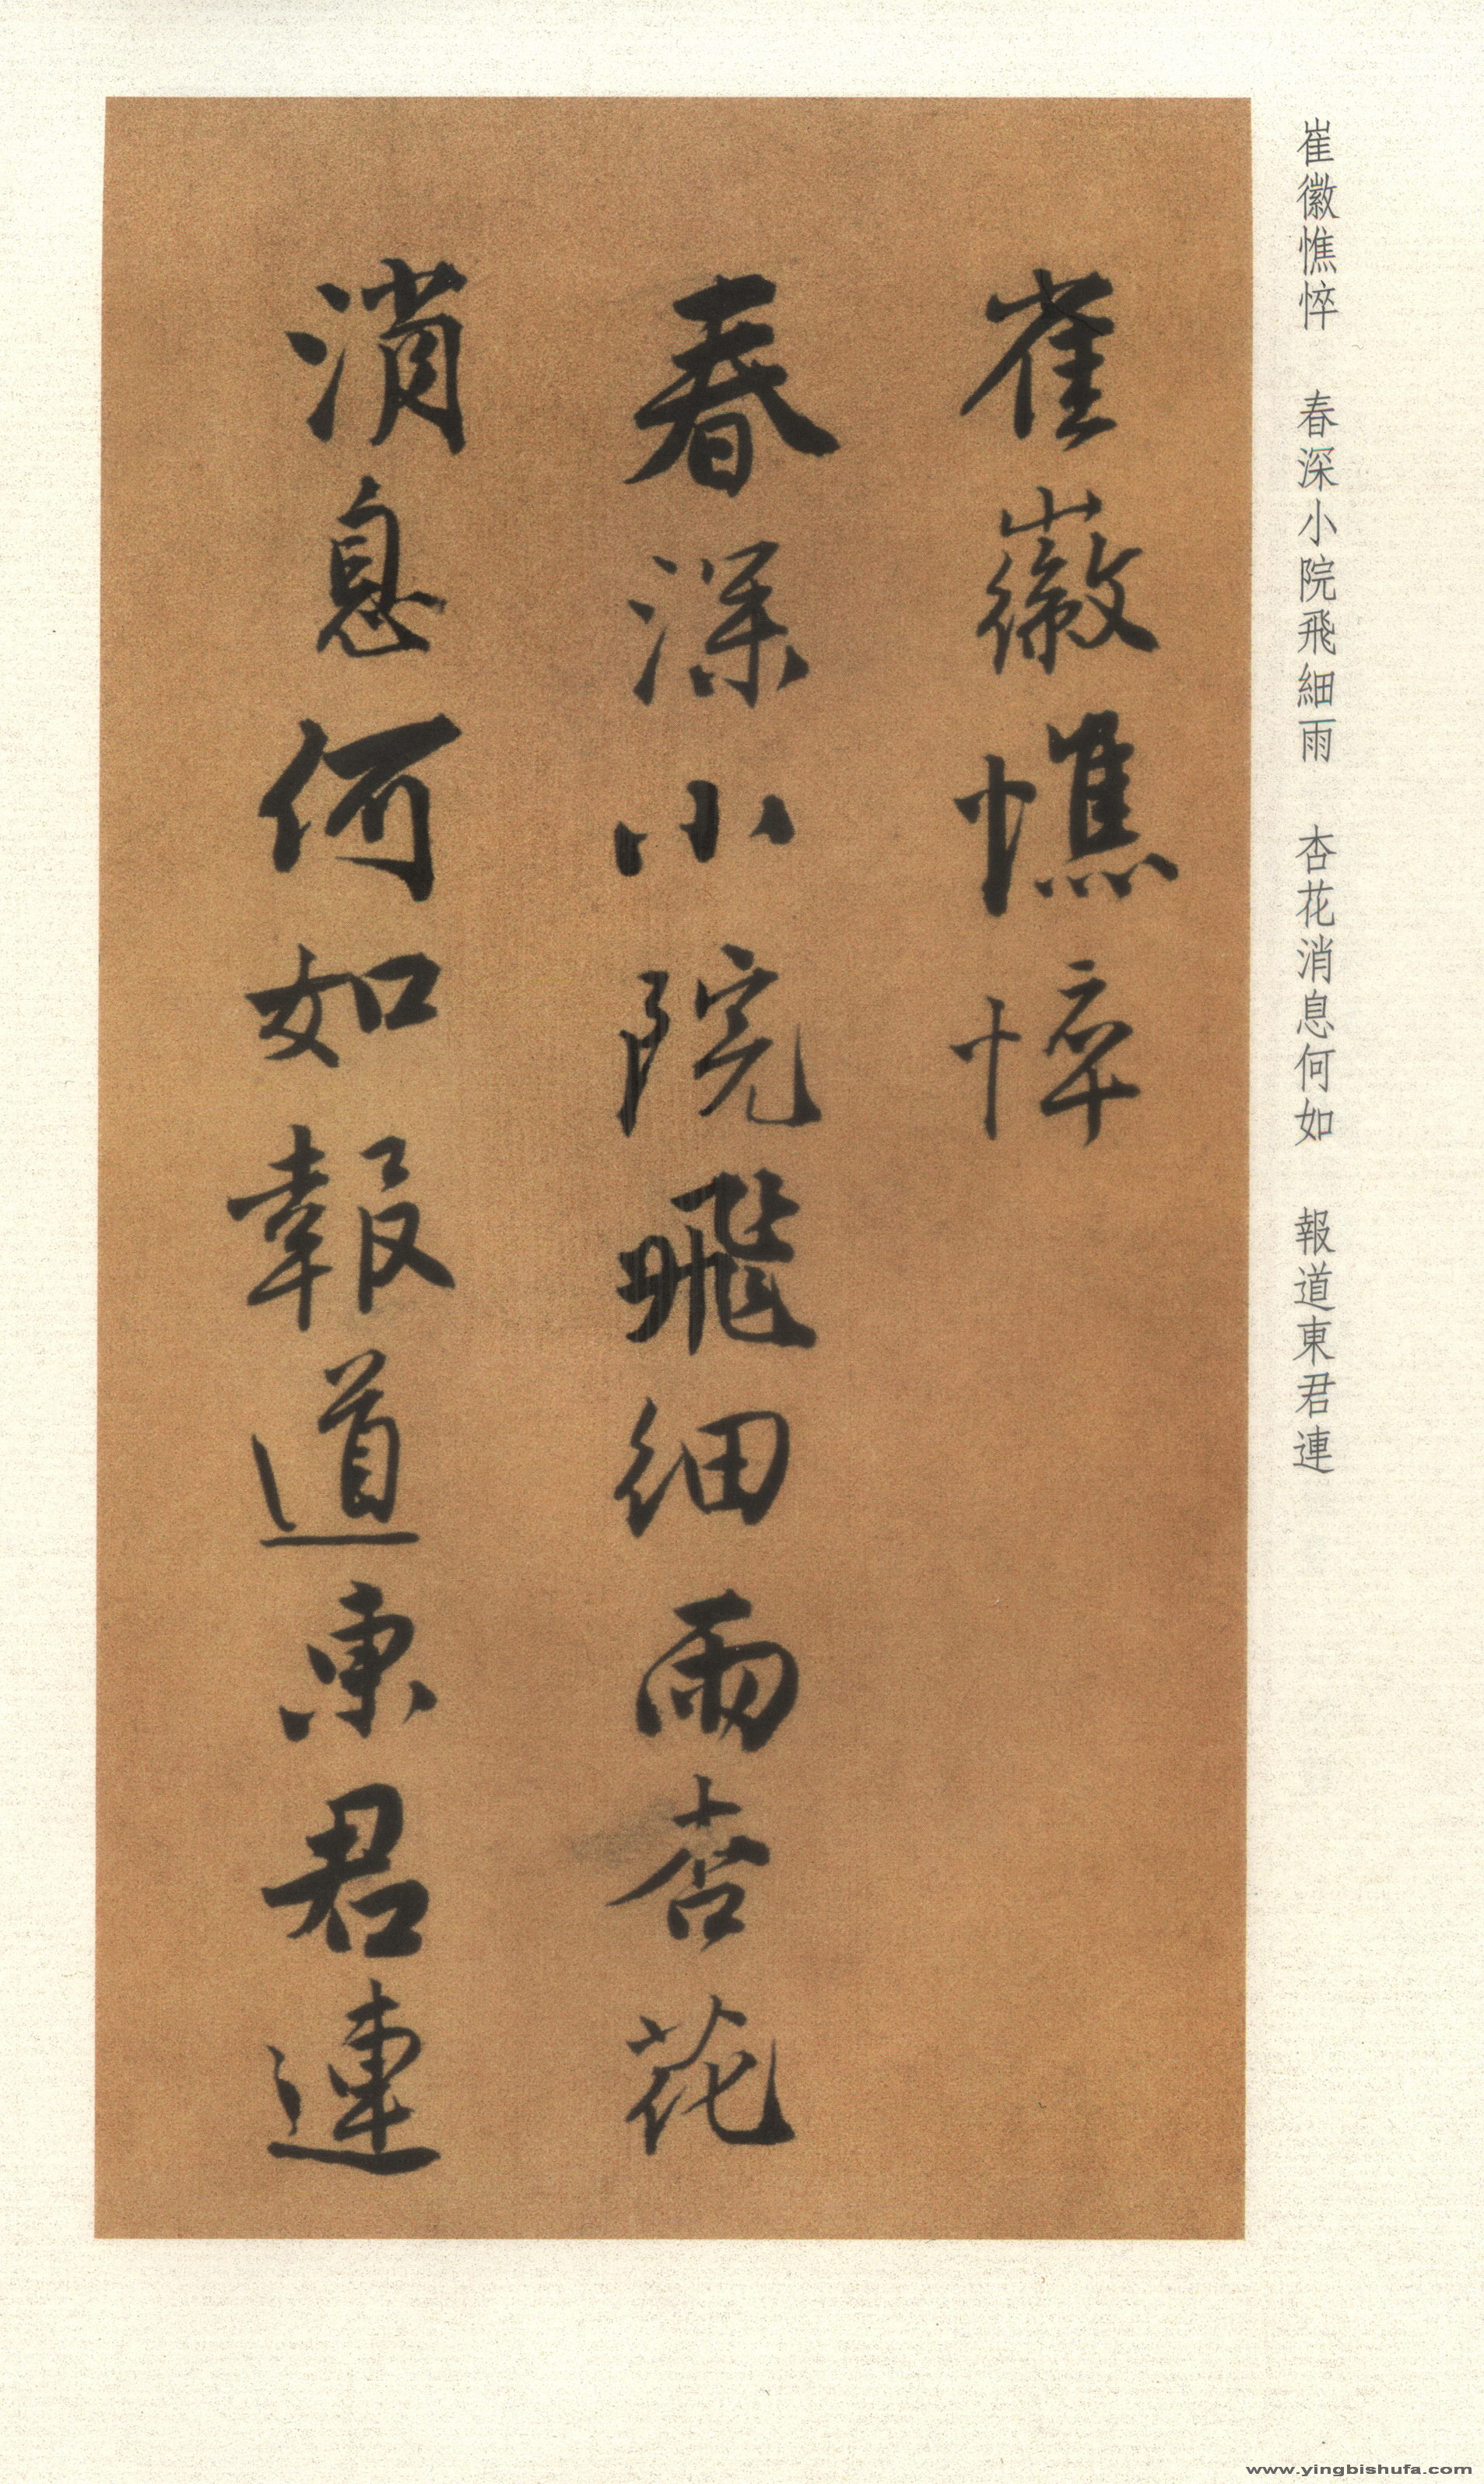 崔徽憔悴　春深小院飛細雨　杏花消息何如　報道東君連
崔徽憔悴
春深小院飛細雨杏花
消息何如報道東君連
www.yingbishufa.com